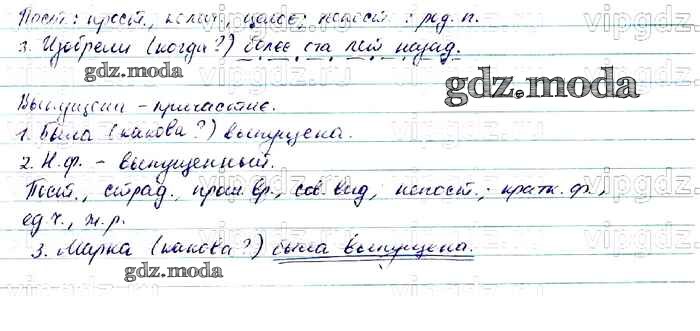 Пост.: прост., колич., целое; непост.: род. п.
3. Изобрели (когда?) более ста лет назад.
gdz.moda
gdz.moda
Выпущена - причастие.
1. Была (какова?) выпущена.
2. Н.ф. - выпущенный.
Пост., страд., прош. вр., сов. вид, непост.: кратк. ф.,
ед.ч., ж.р.
3. Марка (какова?) была выпущена.
gdz.moda
vipgdz.ru